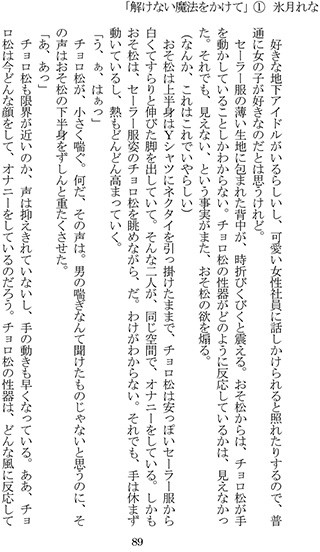 「解けない魔法をかけて」① 氷月れな
好きな地下アイドルがいるらしいし、可愛い女性社員に話しかけられると照れたりするので、普
通に女の子が好きなのだとは思うけれど。
セーラー服の薄い生地に包まれた背中が、時折びくびくと震える。おそ松からは、チョロ松が手
を動かしていることしかわからない。チョロ松の性器がどのように反応しているかは、見えなかっ
た。それでも、見えない、という事実がまた、おそ松の欲を煽る。
（なんか、これはこれでいやらしい）
おそ松は上半身はＹシャツにネクタイを引っ掛けたままで、チョロ松は安っぽいセーラー服から
白くてすらりと伸びた脚を出していて。そんな二人が、同じ空間で、オナニーをしている。しかも
おそ松は、セーラー服姿のチョロ松を眺めながら、だ。わけがわからない。それでも、手は休まず
動いているし、熱もどんどん高まっていく。
「うぅ、ぁ、はぁっ」
チョロ松が、小さく喘ぐ。何だ、その声は。男の喘ぎなんて聞けたものじゃないと思うのに、そ
の声はおそ松の下半身をずしんと重たくさせた。
「あ、あっ」
チョロ松も限界が近いのか、声は抑えきれていないし、手の動きも早くなっている。ああ、チョ
ロ松は今どんな顔をして、オナニーをしているのだろう。チョロ松の性器は、どんな風に反応して
89